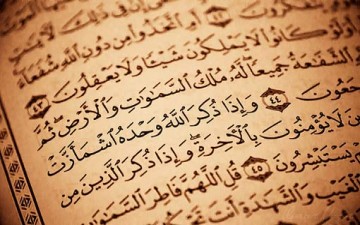 أَمِ ٱتَّخَذُوا۟ مِن دُونِ ٱللَّهِ شُفَعَآءَ
أَوَلَوْ كَانُوا۟ لَا يَمْلِكُونَ شَيْـًٔا وَلَا يَعْقِلُونَ ٤٣
ٱلشَّفَـٰعَةُ جَمِيعًا لَّهُۥ مُلْكُ ٱلسَّمَـٰوَٰتِ وَٱلْأَرْضِ ثُمَّ
جَعُونَ ٤٤ وَإِذَا ذُكِرَ ٱللَّهُ وَحْدَهُ ٱشْمَأَزَّتْ
ينَ لَا يُؤْمِنُونَ بِٱلْـَٔاخِرَةِ ۖ وَإِذَا ذُكِرَ ٱلَّذِينَ مِن
يَسْتَبْشِرُونَ ٤٥ قُلِ ٱللَّهُمَّ فَاطِرَ ٱلسَّمَـٰوَٰ
ٱلْغَيْبِ وَٱلشَّهَـٰدَةِ أَنتَ تَحْكُمُ